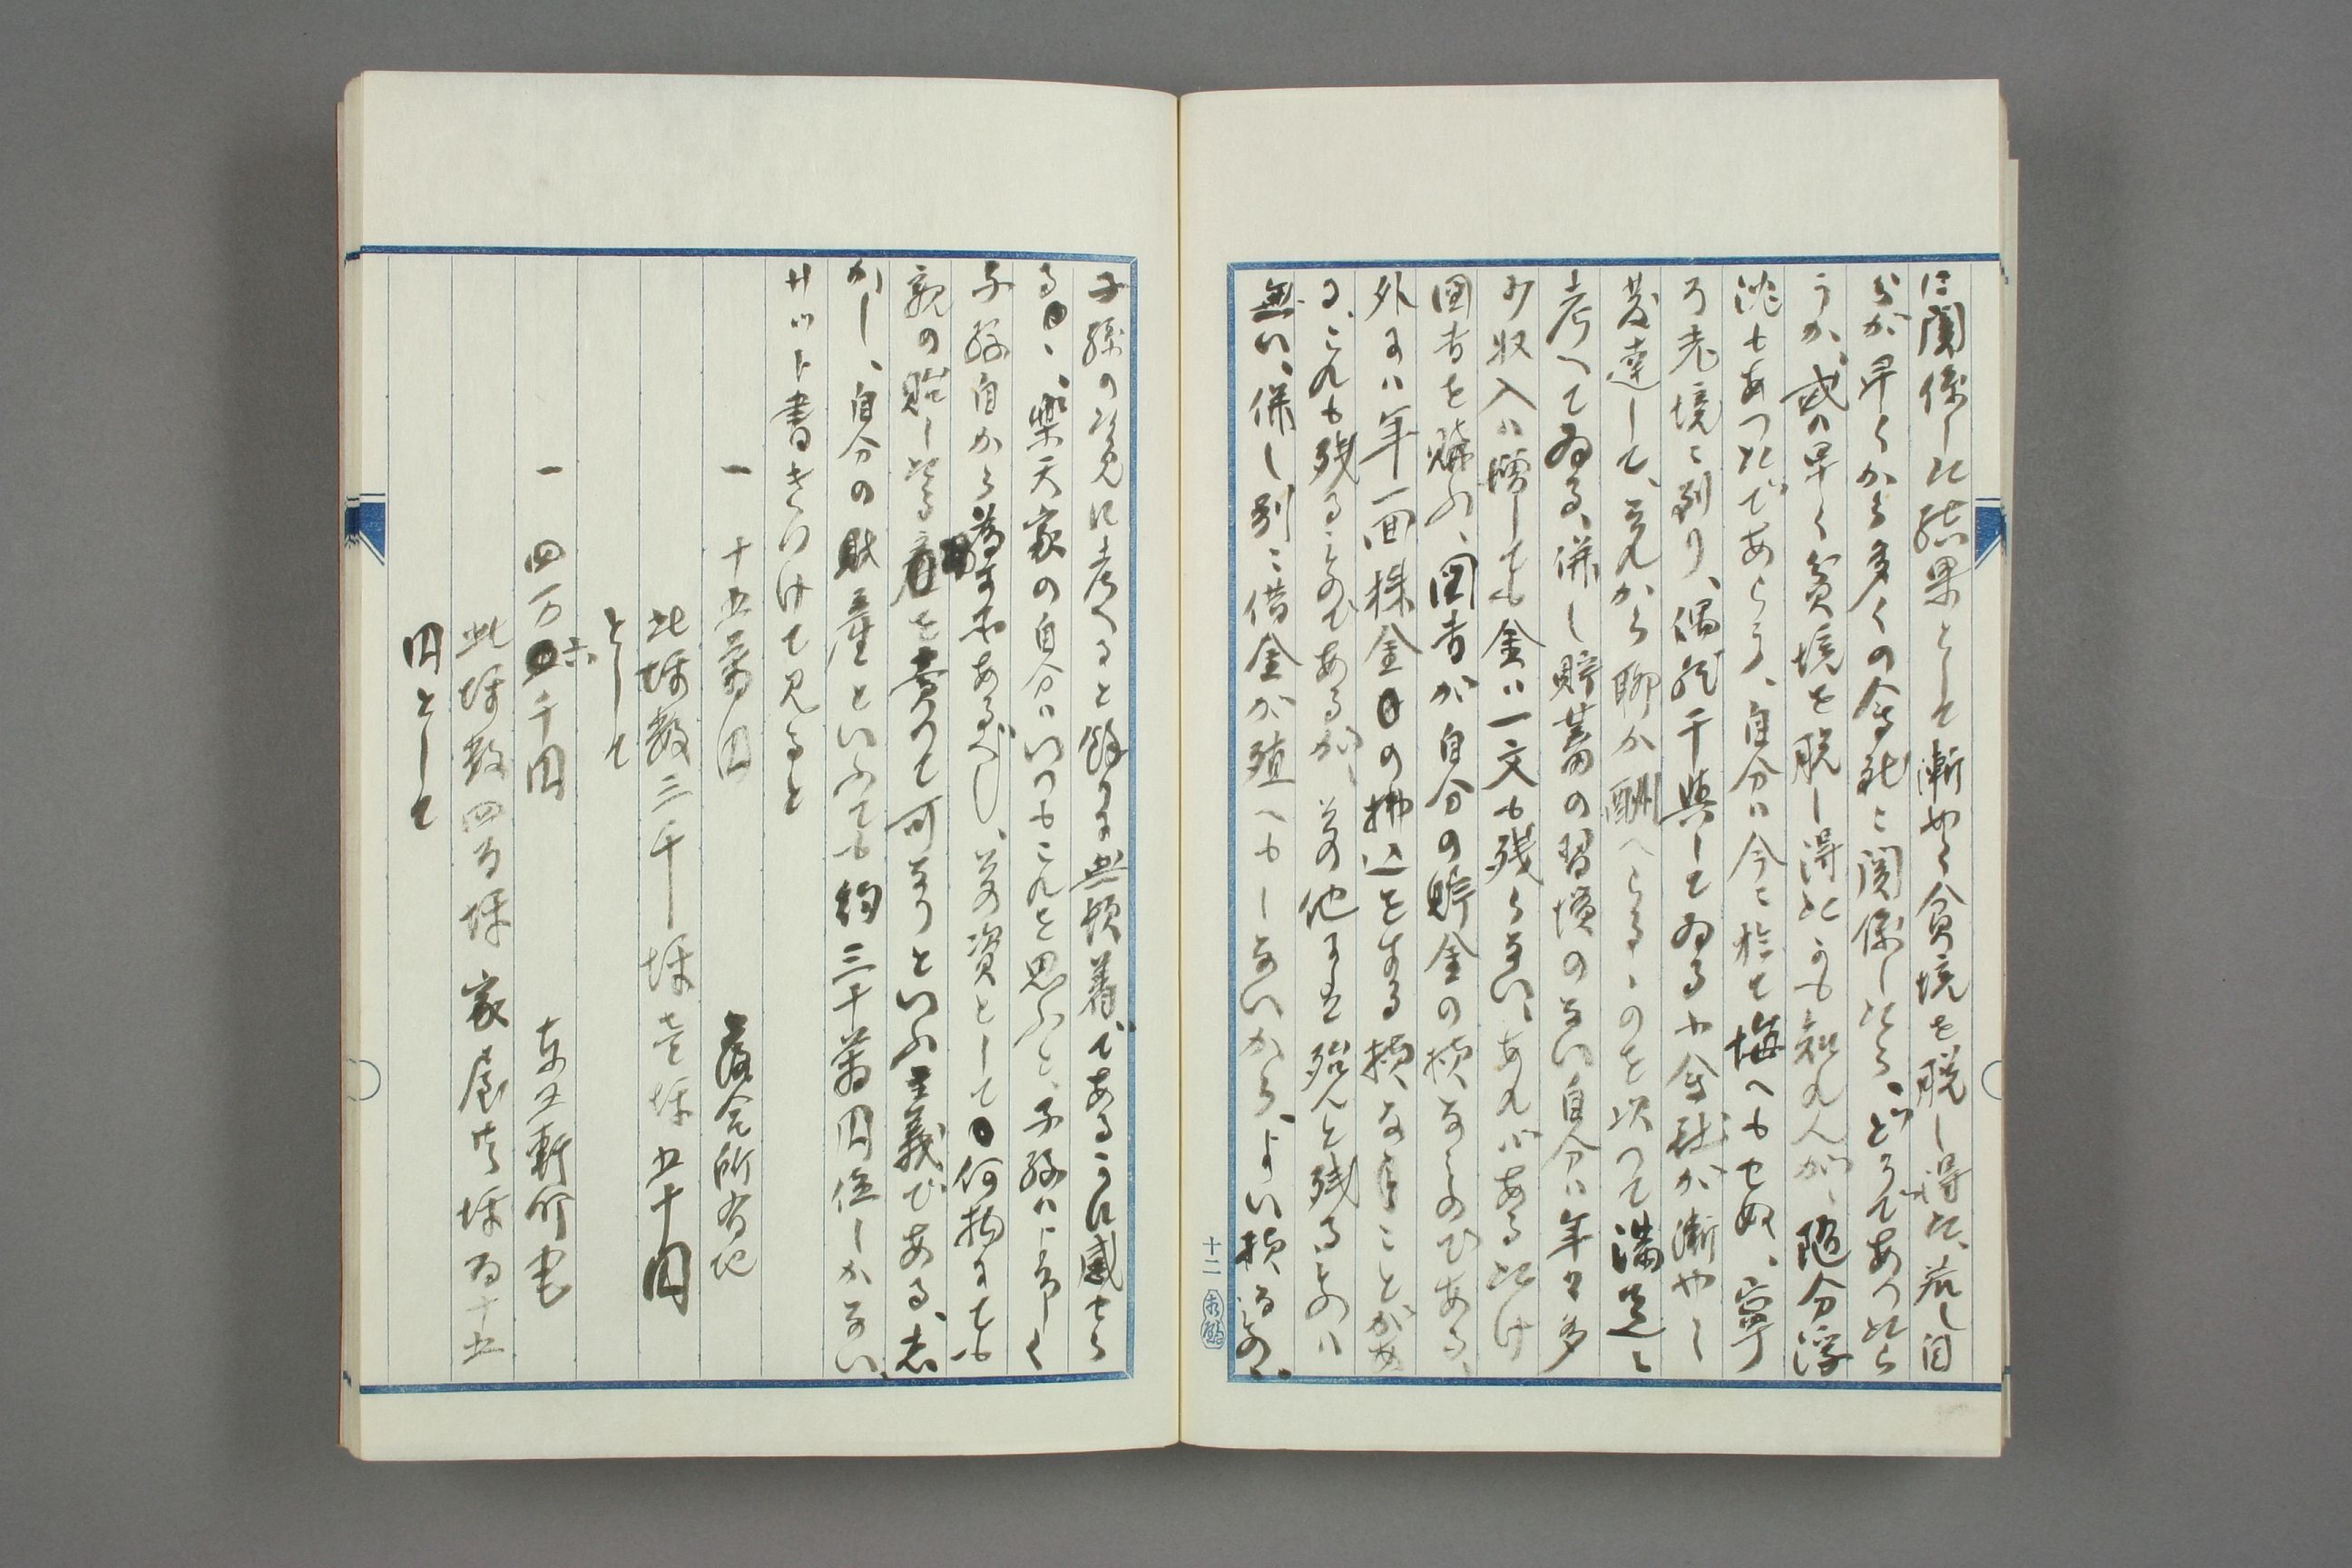 に関係した結果として漸やく貧境を脱し得た、若し自
分が早くから多くの会社に関係したら、どうであつたら
うか、或は早く貧境を脱し得たかも知れんが、随分浮
沈もあつたであらう、自分は今に於て悔へもせぬ、寧
ろ老境に到り、偶然干与してゐる小会社が漸やく
発達して、之れから聊か酬へらるゝのを以つて満足に
考へてゐる、併し貯蓄の習慣のない自分は年々多
少収入は増しても金は一文も残らない、あれバあるだけ
図書を購ふ、図書が自分の貯金の積なのである、
外には年一回株金の払込をする積なことが
る、これも残るものであるが、其の他には殆んと残るものハ
無い、併し別に借金が殖へもしないから、よい積なの、
十二
子孫の為めに考へると余りに無頓着であるかに感せら
る、楽天家の自分はいつもこれを思ふと、子孫ハ
子孫自から為す所あるべし、其の資として何物にても
親の貽したる者を売つて可なりといふ主義である、志
かし、自分の財産といふても約三十萬円位しかない
サツト書きつけて見ると
一 十五萬円 落合所有地
此坪数三千坪壱坪五十円
として
一 四万六千円
此坪数四百坪家屋共坪百十五
円として